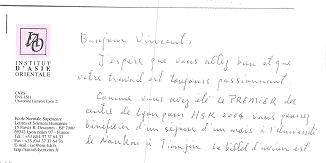 INSTITUT
D'ASIE
ORIENTALE
CNRS
ENS-LSH
Université Lumière Lyon 2
Ecole Normale Supérieure
Lettres et Sciences Humaines
15 Parvis R. Descartes - BP 7000
69342 Lyon cedex 07 - France
Bonjour Vincent,
J'espère que vous allez bien et que
votre travail est toujours passionnant.
Comme vous avez été le PREMIER des
centre de Lyon pour HSK 2004 vous pouvez
bénéficier d'un séjour d'un mois à l'université
de Nankai à Tianjin. Le billet d'avion est